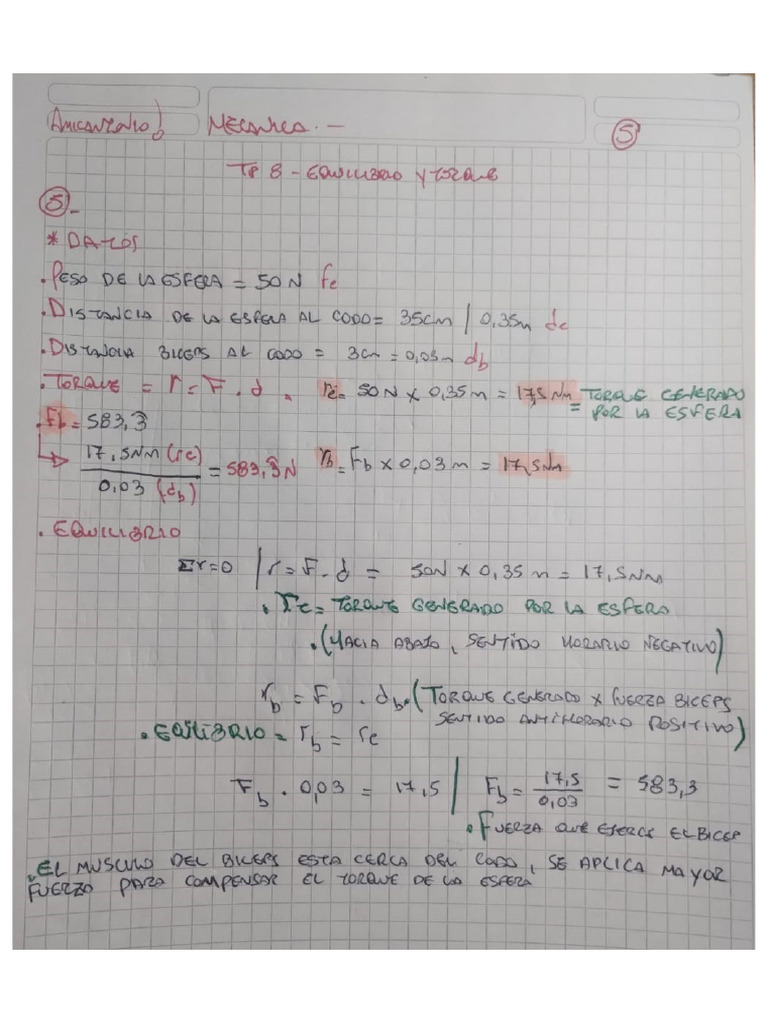 MECANICA.-
5
TP 8 - EQUILIBRIO Y TORQUE
5-
* DATOS
. PESO DE LA ESFERA = 50N fe
. DISTANCIA DE LA ESFERA AL CODO = 35cm / 0,35m de
. DISTANCIA BICEPS AL CODO = 3cm = 0,03m db
. TORQUE = r = F . d . re = 50N x 0,35m = 17,5Nm = TORQUE GENERADO POR LA ESFERA
. Fb = 583,3
17,5Nm (re) / 0,03 (db) = 583,3N rb = Fb x 0,03m = 17,5Nm
. EQUILIBRIO
Σr=0 / r = F . d = 50N x 0,35m = 17,5Nm
. re = TORQUE GENERADO POR LA ESFERA
. (HACIA ABAJO, SENTIDO HORARIO NEGATIVO)
rb = Fb . db . (TORQUE GENERADO x FUERZA BICEPS
SENTIDO ANTIHORARIO POSITIVO)
. EQILIBRIO = rb = re
Fb . 0,03 = 17,5 | Fb = 17,5 / 0,03 = 583,3
. FUERZA QUE EJERCE EL BICEP
. EL MUSCULO DEL BICEPS ESTA CERCA DEL CODO, SE APLICA MAYOR
FUERZO PARA COMPENSAR EL TORQUE DE LA ESFERA